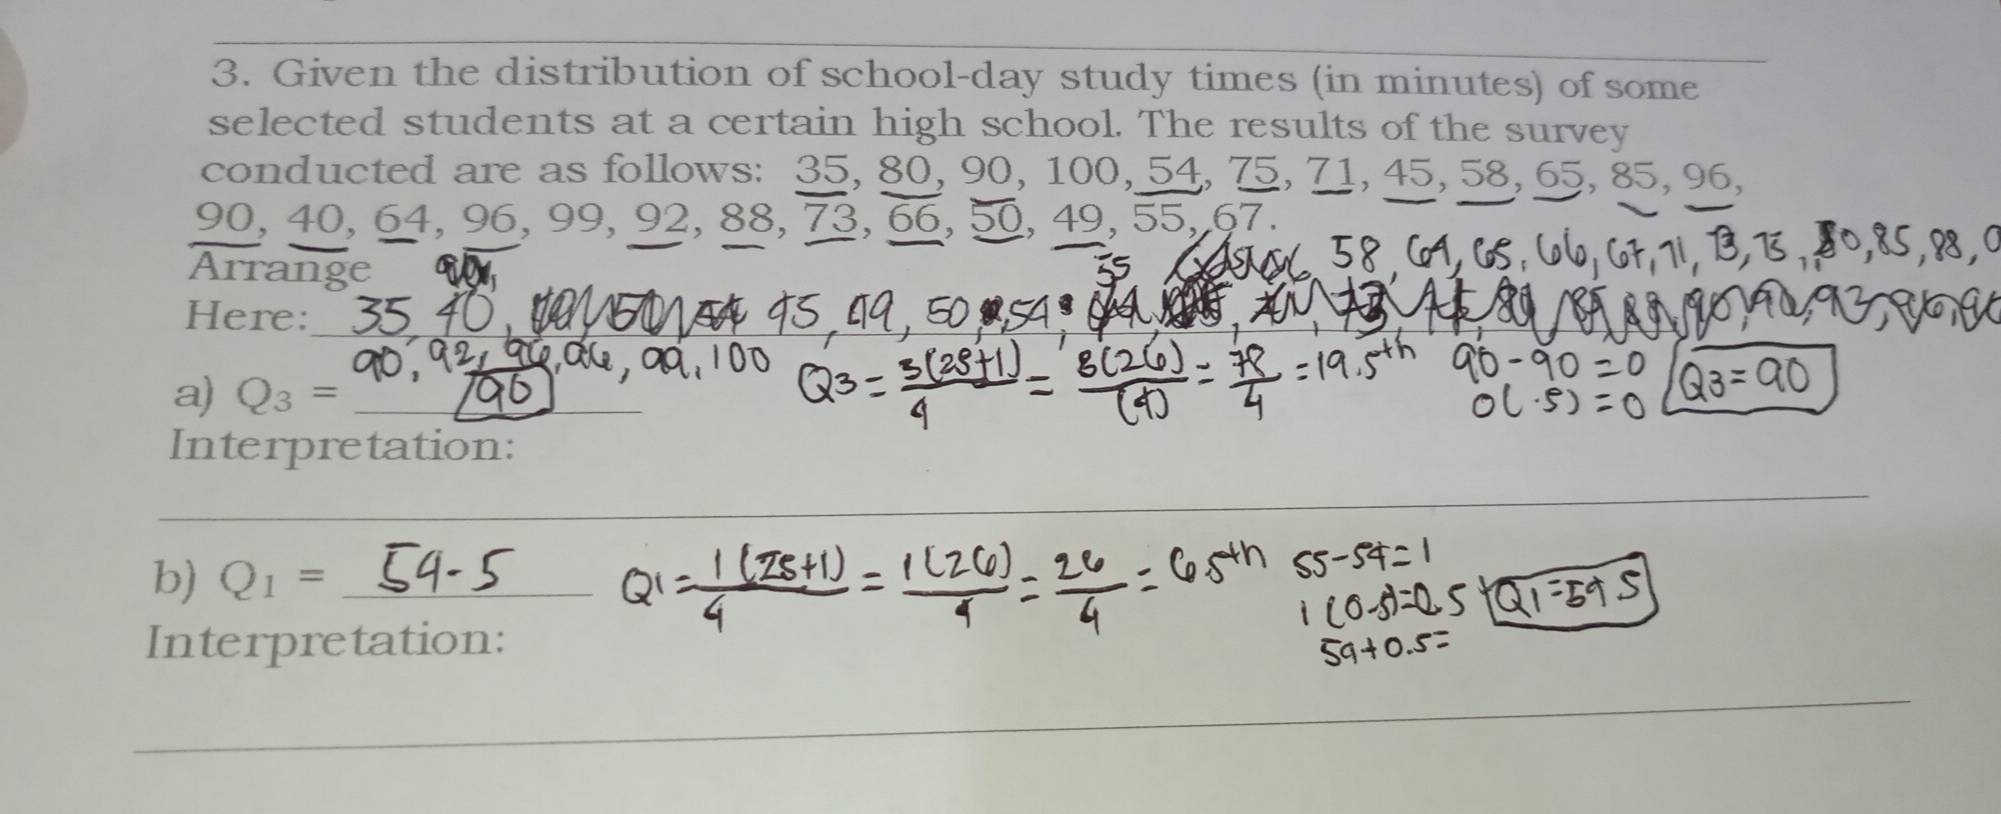 3. Given the distribution of school-day study times (in minutes) of some
selected students at a certain high school. The results of the survey
conducted are as follows: 35, 80, 90, 100, 54, 75, 71, 45, 58, 65, 85, 96,
90, 40, 64, 96, 99, 92, 88, 73, 66, 50, 49, 55, 67.
Arrange 55 58, 64, 65, 66, 67, 71, 73, 75, 80, 85, 88, 9
Here: 35 40, 45, 49, 50, 54
90, 92, 96, 96, 99, 100
a) Q3 = 90 Q3 = 3(25+1)/4 = 3(26)/(4) = 78/4 = 19.5th 90-90=0 Q3=90
0(.5)=0
Interpretation:
b) Q1 = 54.5 Q1 = 1(25+1)/4 = 1(26)/4 = 26/4 = 6.5th 55-54=1
1(0.5)=0.5 Q1=54.5
54+0.5=
Interpretation: